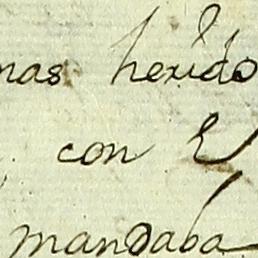 mas herido
con
mandaba